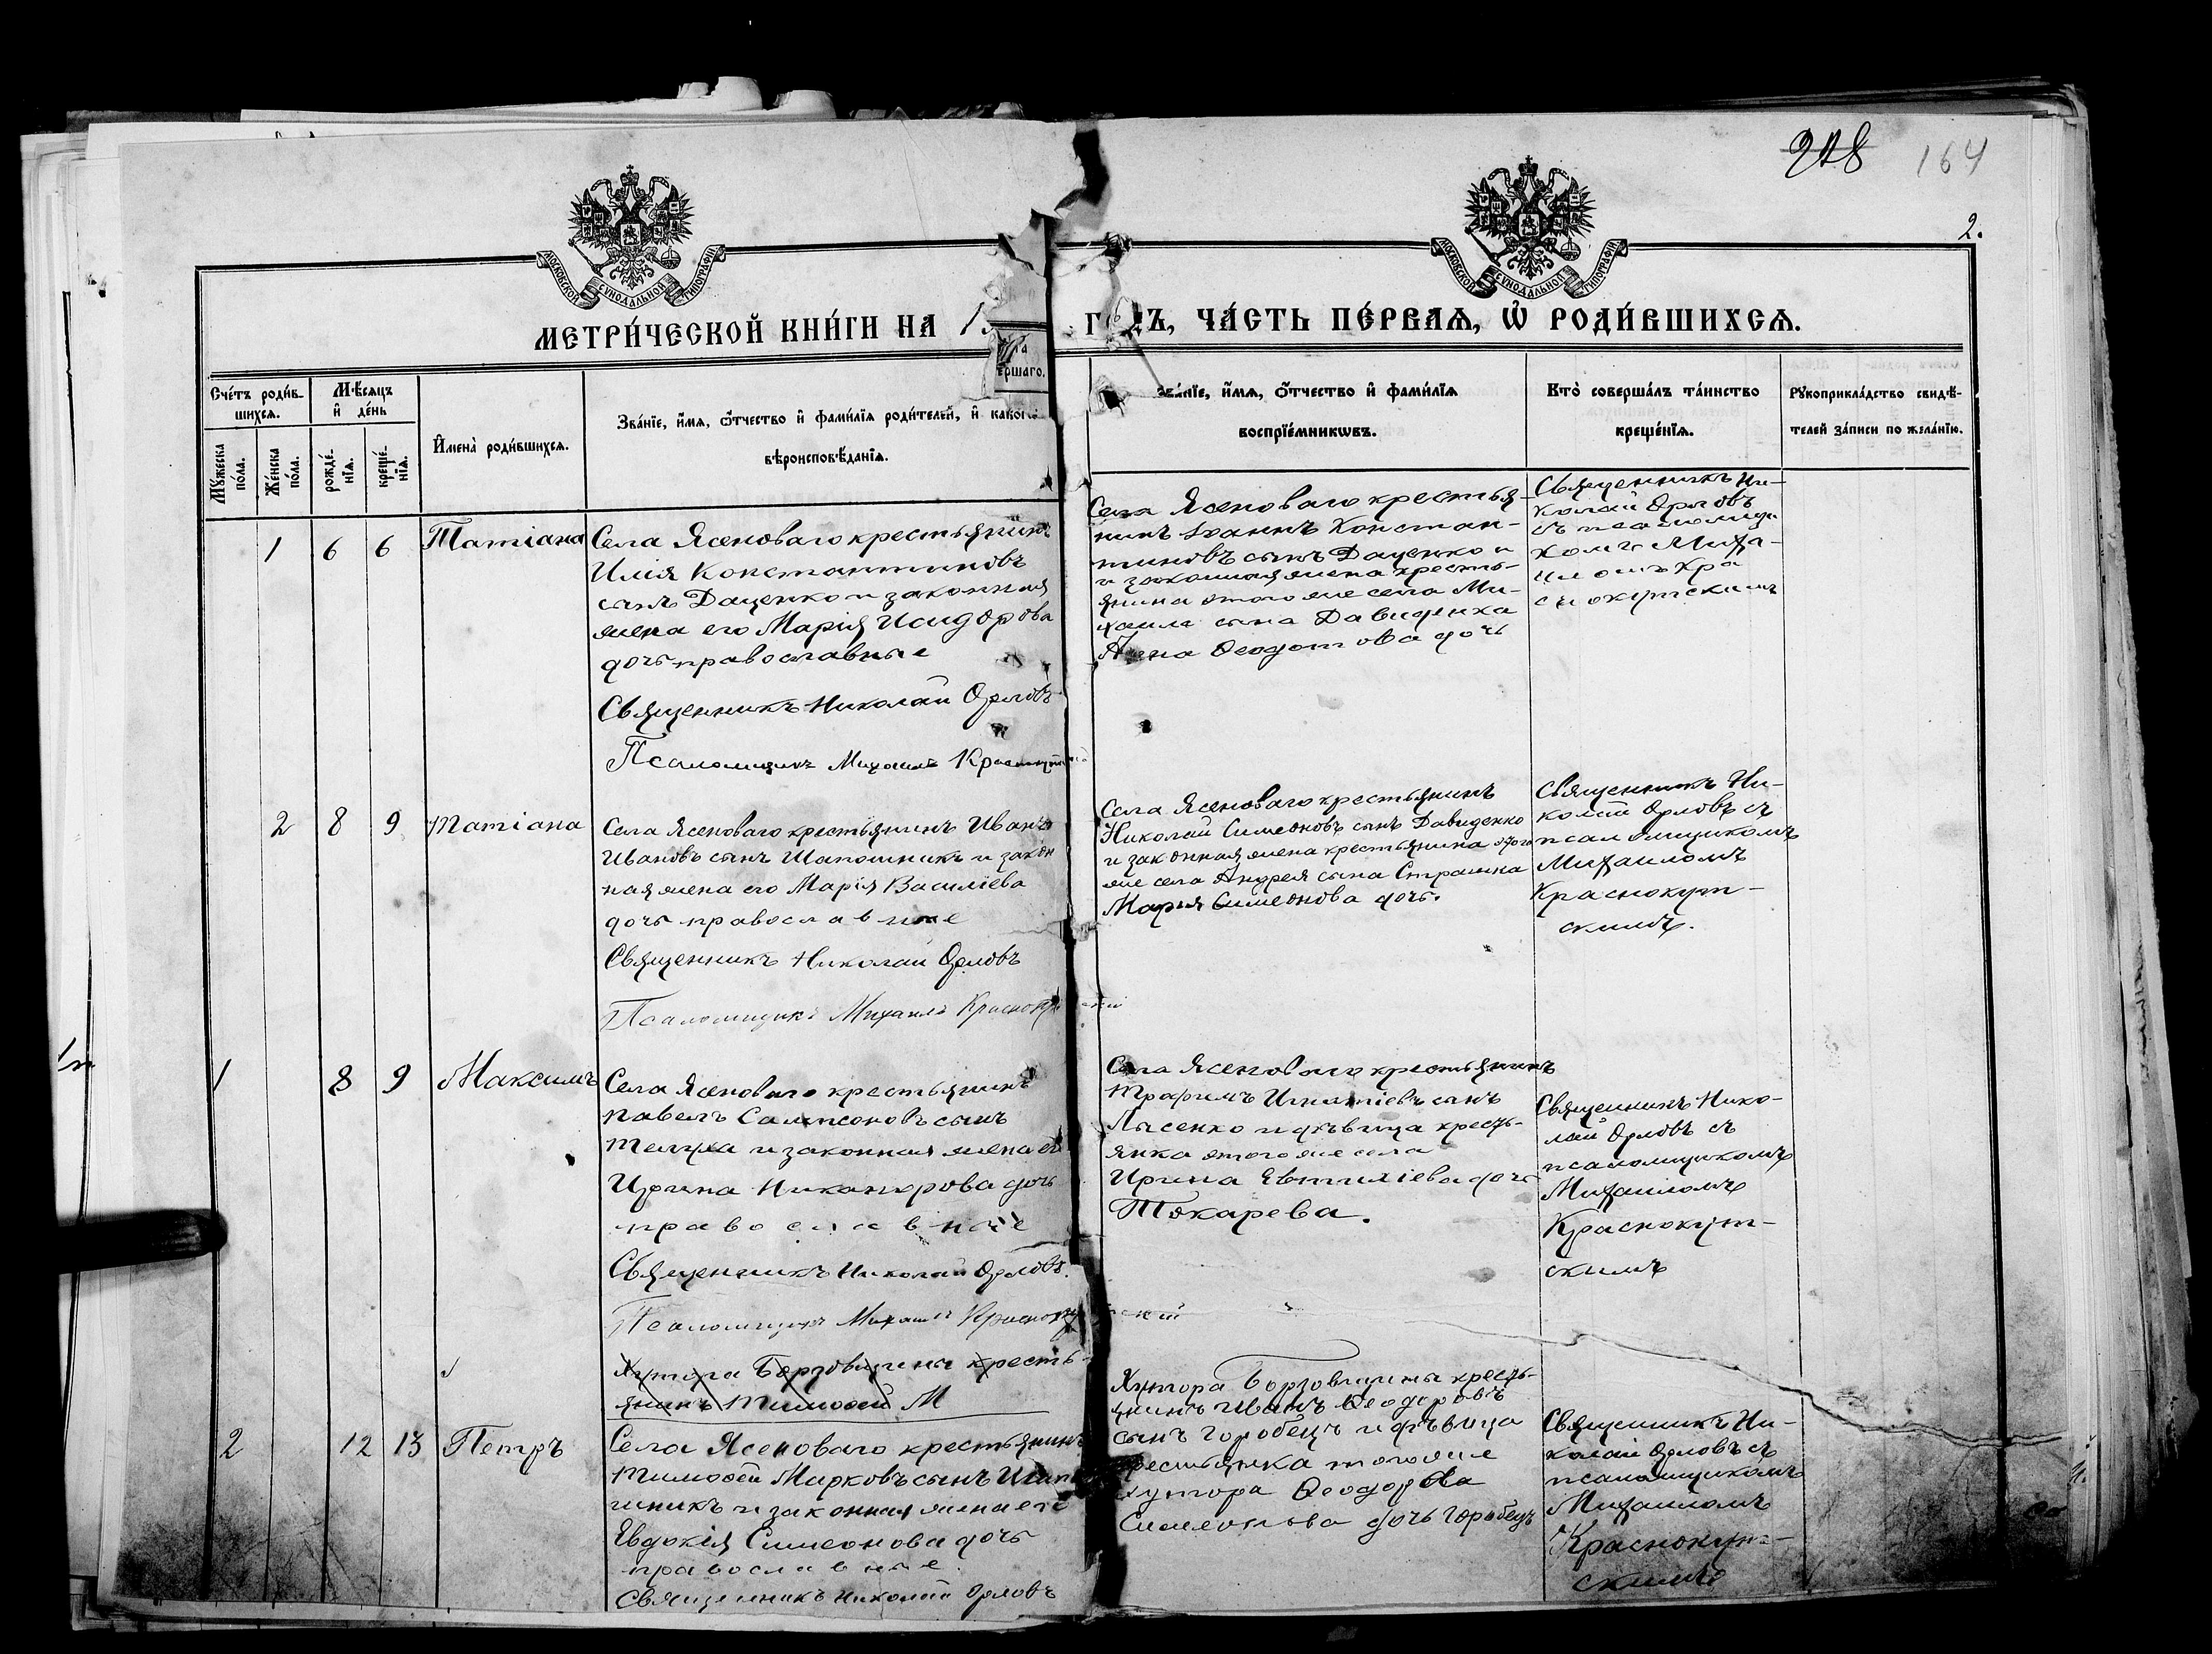 218 164
2.
МОСКОВСКОЙ СѴНОДАЛЬНОЙ ТИПОГРАФІИ
МОСКОВСКОЙ СѴНОДАЛЬНОЙ ТИПОГРАФІИ
МЕТРИ́ЧЕСКОЙ КНИ́ГИ НА 1 ГОДЪ, ЧА́СТЬ ПЕ́РВАЯ, Ѡ҆ РОДИ́ВШИХСЯ.
Сче́тъ роди́в-
шихся.
Мѣ́сяцъ
и҆ де́нь
Мꙋ́жеска
по́ла.
Же́нска
по́ла.
рожде́-
нїя.
креще́-
нїя.
И҆мена̀ роди́вшихся.
Зва́нїе, и҆́мя, ѻ҆́тчество и҆ фами́лїя роди́телей, и҆ како́гѡ
вѣроисповѣ́данїя.
Зва́нїе, и҆́мя, ѻ҆́тчество и҆ фами́лїя
воспрїе́мникѡвъ.
Кто̀ соверша́лъ та́инство
креще́нїя.
Рꙋкоприкла́дство свидѣ́-
телей за́писи по жела́нїю.
1 6 6 Татіана
Села Ясеноваго крестьянинъ
Илія Константиновъ
сынъ Даценко и законная
жена его Марія Исидорова
дочь православные
Священникъ Николай Орловъ
Псаломщикъ Михаилъ Краснокутскій
Села Ясеноваго крестья-
нинъ Іоаннъ Констан-
тиновъ сынъ Даценко и
и законная жена кресть-
янина этого же села Ми-
хаила сына Давиденка
Анна Ѳеодотова дочь
Священникъ Ни-
колай Орловъ
съ псаломщи
комъ Миха-
иломъ Кра
снокутскимъ
2 8 9 Татіана
Села Ясеноваго крестьянинъ Иванъ
Ивановъ сынъ Шапошникъ и закон
ная жена его Марія Василіева
дочь православные
Священникъ Николай Орловъ
Псаломщикъ Михаилъ Краснокутскій
Села Ясеноваго крестьянинъ
Николай Симеоновъ сынъ Давиденко
и законная жена крестьянина этого
же села Андрея сына Страшка
Марья Симеонова дочь.
Священникъ Ни-
колай Орловъ съ
псаломщикомъ
Михаиломъ
Краснокут-
скимъ.
1 8 9 Максимъ
Села Ясеноваго крестьянинъ
Павелъ Сампсоновъ сынъ
Телуха и законная жена его
Ирина Никанорова дочь
православные
Священникъ Николай Орловъ.
Псаломщикъ Михаилъ Краснокутскій
Села Ясеноваго крестьянинъ
Трофимъ Игнатіевъ сынъ
Лысенко и дѣвица кресть-
янка этого же села
Ирина Евтихіева дочь
Токарева.
Священникъ Нико-
лай Орловъ съ
псаломщикомъ
Михаиломъ
Краснокут-
скимъ
Хутора Борзовщины кресть-
янинъ Тимофей М
2 12 13 Петръ
Села Ясеноваго крестьянинъ
Тимофей Марковъ сынъ
шникъ и законная жена его
Евдокія Симеонова дочь
православные.
Священникъ Николай Орловъ
Хутора Борзовщины кресть-
янинъ Иванъ Ѳеодоровъ
сынъ Горобецъ и дѣвица
крестьянка того же
хутора Ѳеодора
Симеонова дочь Горобецъ
Священникъ Ни-
колай Орловъ съ
псаломщикомъ
Михаиломъ
Краснокут-
скимъ